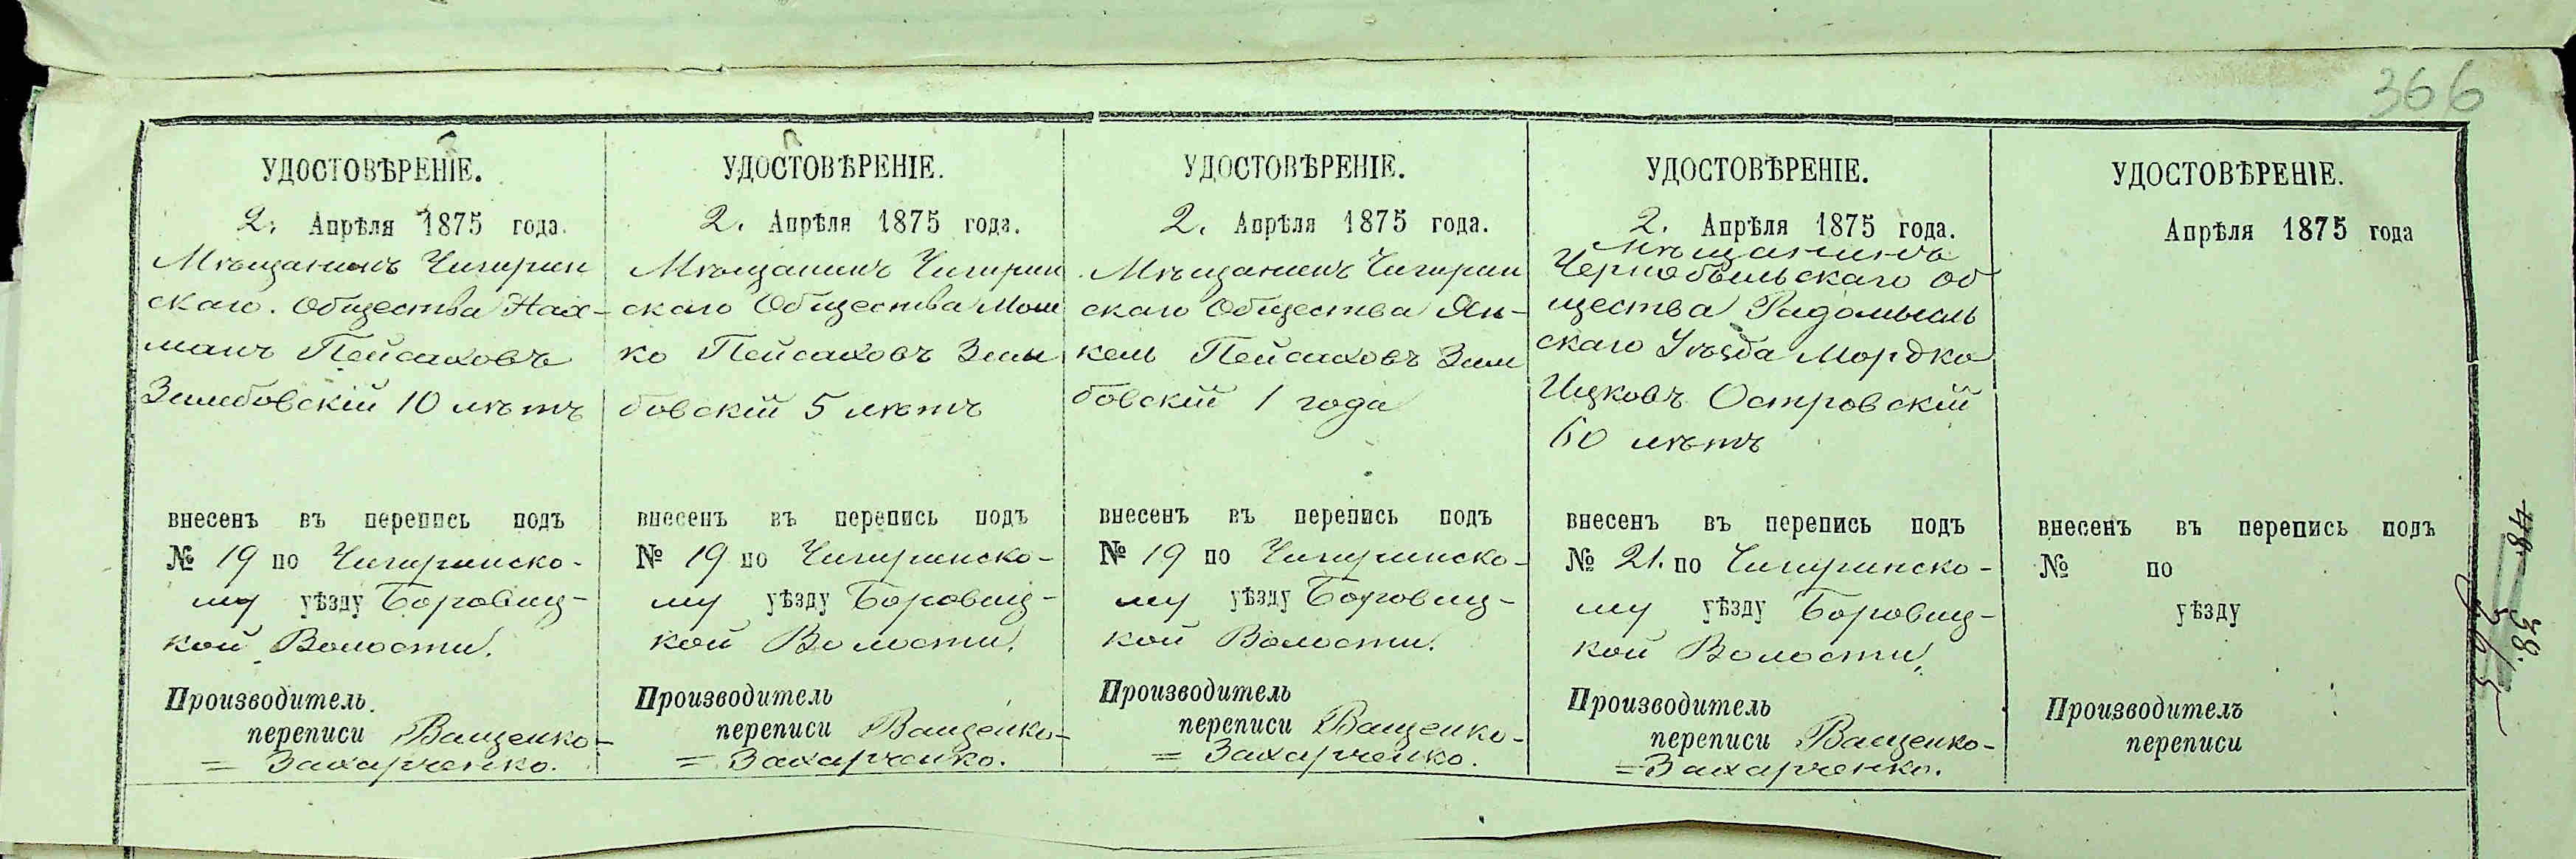 366
УДОСТОВѢРЕНІЕ.
2. Апрѣля 1875 года.
Мѣщанинъ Чигирин
скаго. Общества Нах-
манъ Пейсаховъ
Зимбовскій 10 лѣтъ
внесенъ въ перепись подъ
№ 19 по Чигиринско-
му уѣзду Боровиц-
кой Волости.
Производитель
переписи Ващенко-
= Захарченко.
УДОСТОВѢРЕНІЕ.
2. Апрѣля 1875 года.
Мѣщанинъ Чигирин
скаго Общества Мош
ко Пейсаховъ Зим
бовскій 5 лѣтъ
внесенъ въ перепись подъ
№ 19 по Чигиринско-
му уѣзду Боровиц-
кой Волости.
Производитель
переписи Ващенко-
= Захарченко.
УДОСТОВѢРЕНІЕ.
2. Апрѣля 1875 года.
Мѣщанинъ Чигирин
скаго Общества Ян-
кель Пейсаховъ Зим
бовскій 1 года
внесенъ въ перепись подъ
№ 19 по Чигиринско-
му уѣзду Боровиц-
кой Волости.
Производитель
переписи Ващенко-
= Захарченко.
УДОСТОВѢРЕНІЕ.
2. Апрѣля 1875 года.
мѣщанинъ
Чернобыльскаго Об
щества Радомысль
скаго Уѣзда Мордко
Ицковъ Островскій
60 лѣтъ
внесенъ въ перепись подъ
№ 21. по Чигиринско-
му уѣзду Боровиц-
кой Волости.
Производитель
переписи Ващенко-
= Захарченко.
УДОСТОВѢРЕНІЕ.
Апрѣля 1875 года
внесенъ въ перепись подъ
№ по
уѣзду
Производитель
переписи
38.